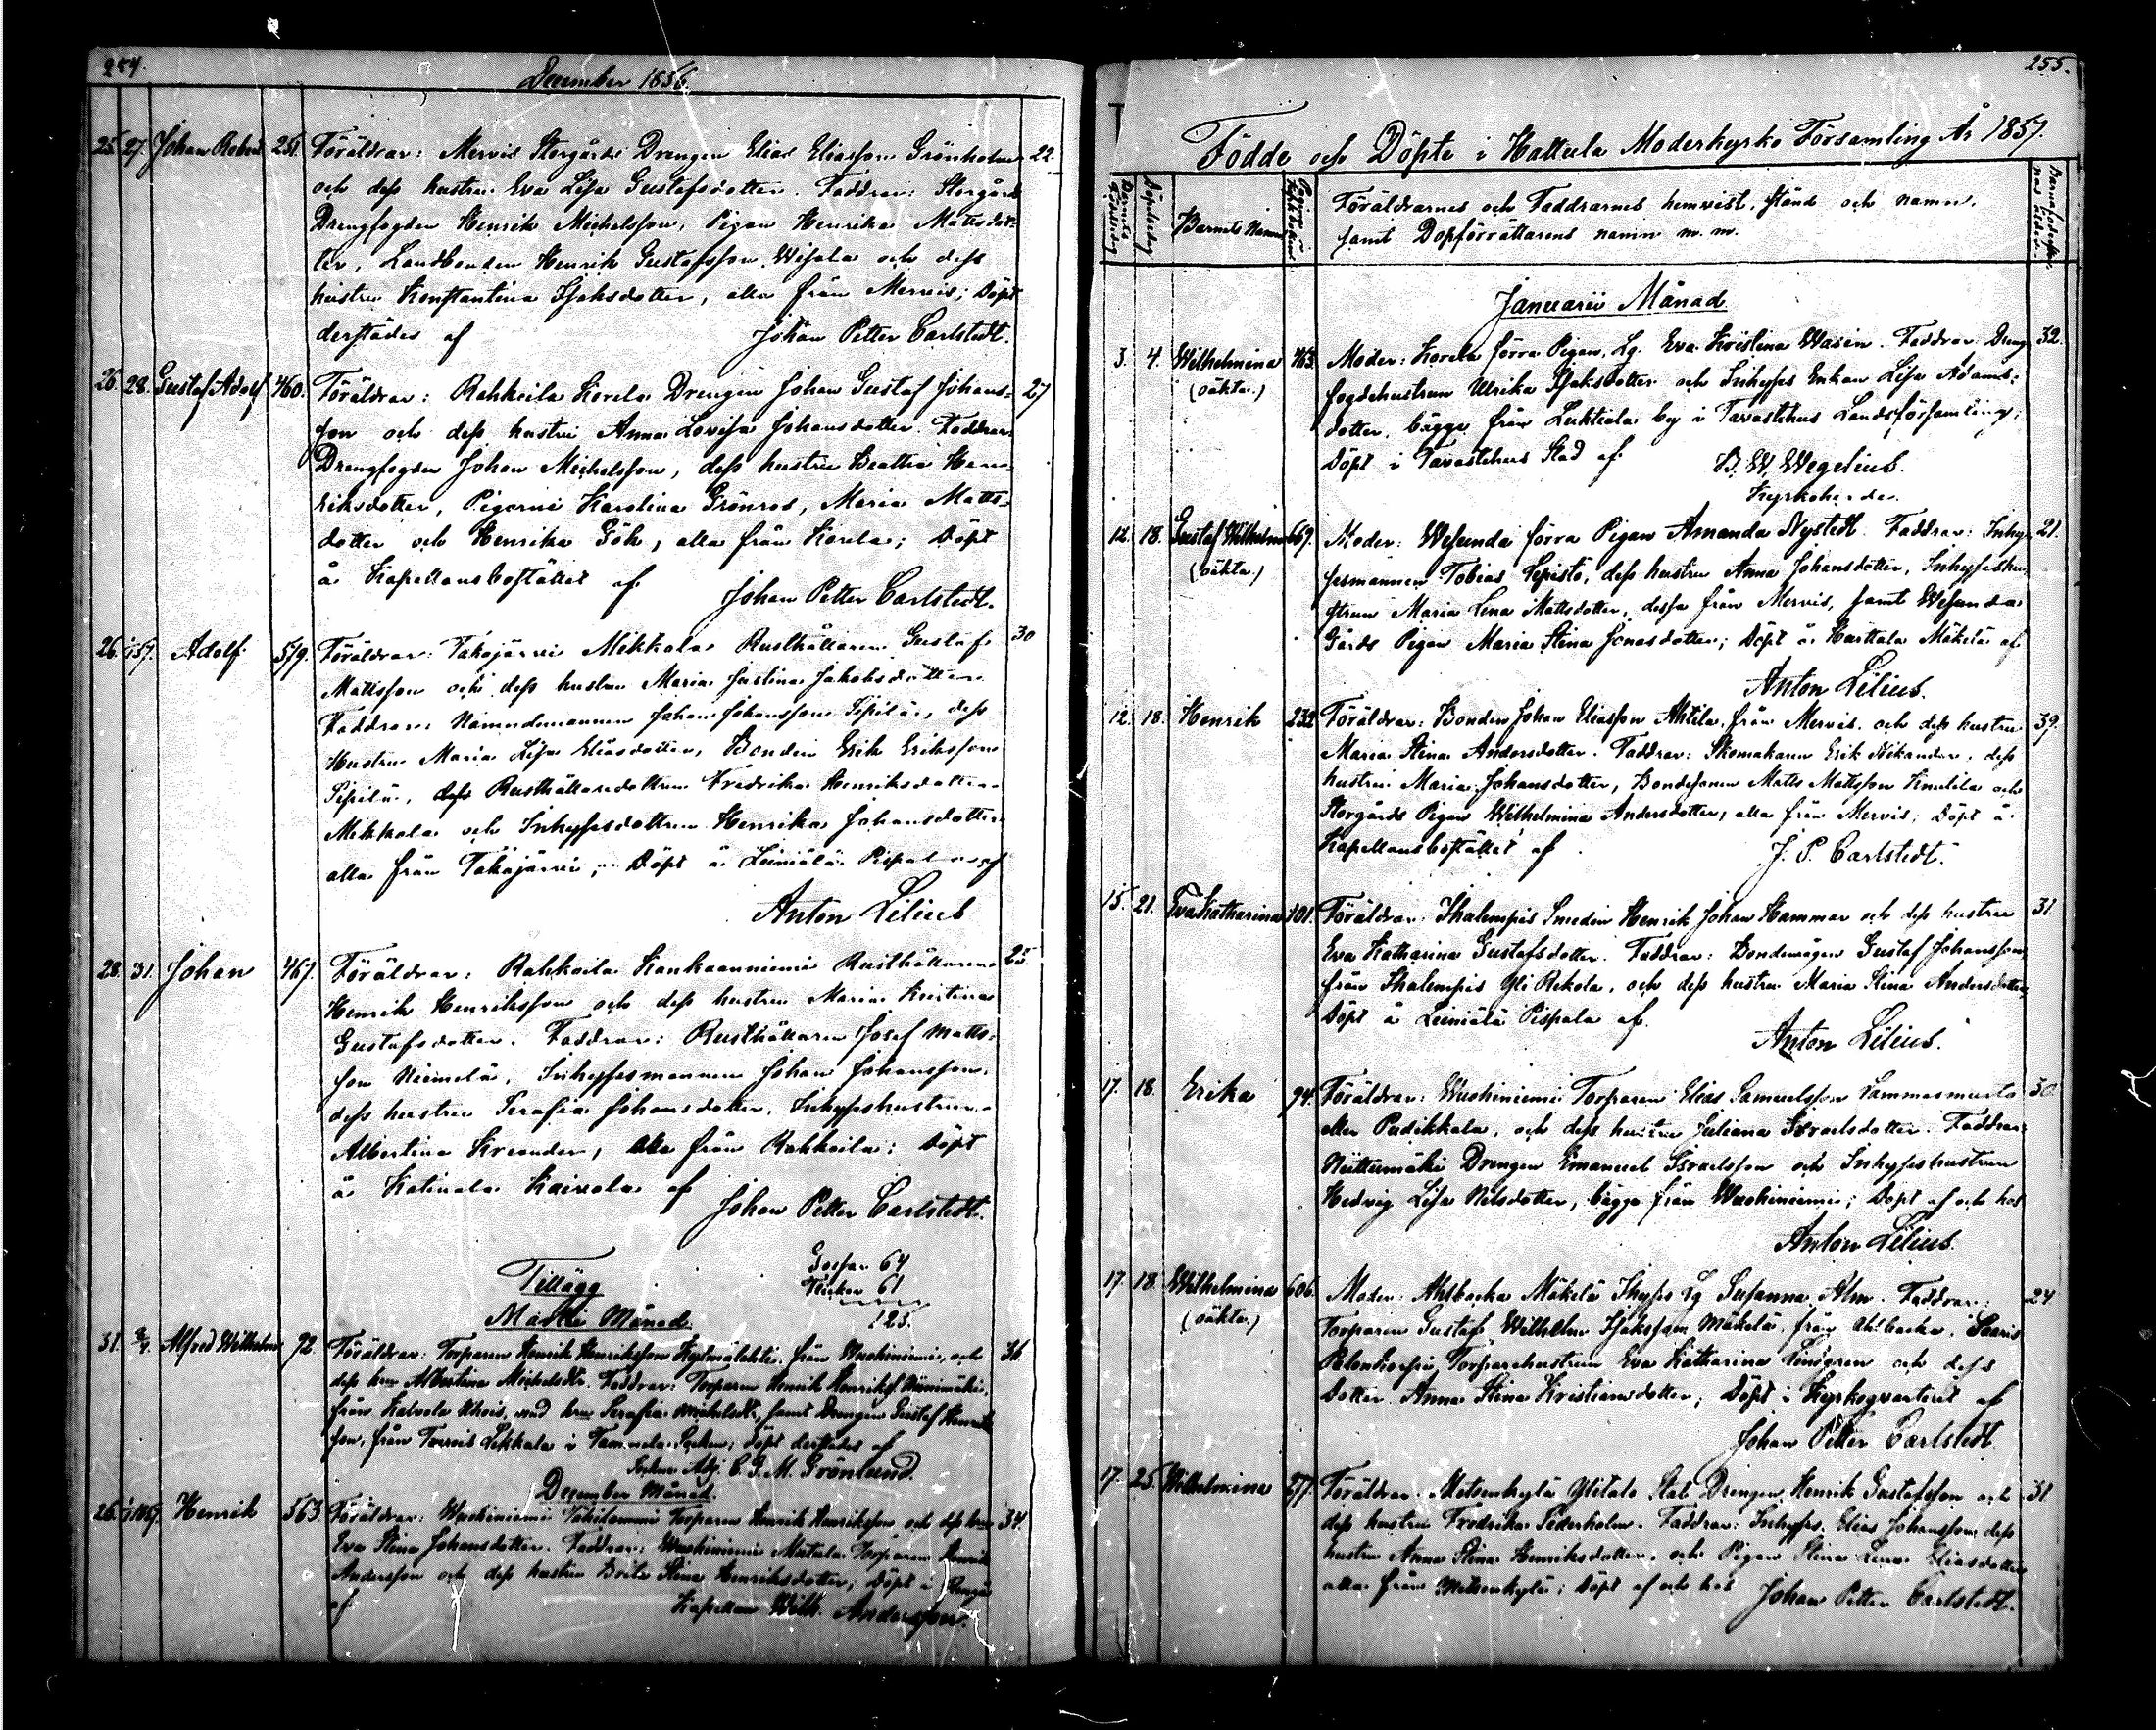 254.
December 1856.
25. 27. Johan Robert 251. Föräldrar: Mervis Storgårds Drengen Elias Eliasson Grönholm 22.
och dess hustru Eva Lisa Gustafsdotter. Faddrar: Storgårds
Drengfogden Henrik Michelsson, Pigan Henrika Mattsdot=
ter, Landbonden Henrik Gustafsson Wisala och dess
hustru Konstantina Isaksdotter, alla från Mervis; Döpt
derstädes af Johan Petter Carlstedt.
26. 28. Gustaf Adolf 460. Föräldrar: Rahkoila Korela Drengen Johan Gustaf Johans= 27
son och dess hustru Anna Lovisa Johansdotter. Faddrar:
Drengfogden Johan Michelsson, dess hustru Beatha Hen=
riksdotter, Pigorna Karolina Grönros, Maria Matts=
dotter och Henrika Gök, alla från Korela; Döpt
å Kapellansbostället af Johan Petter Carlstedt.
26. Adolf 579. Föräldrar: Takajärvi Mikkola Rusthållaren Gustaf 30
Mattsson och dess hustru Maria Justina Jakobsdotter.
Faddrar: Nämndemannen Johan Johansson Sipilä, dess
Hustru Maria Lisa Eliasdotter, Bonden Erik Eriksson
Sipilä, Rusthållaredottren Fredrika Henriksdotter
Mikkola och Inhysesdottren Henrika Johansdotter
alla från Takajärvi; Döpt å Leiniälä Pispala af
Anton Lilius
28. 31. Johan 467. Föräldrar: Rahkoila Kankaanniemi Rusthållaren 25.
Henrik Henriksson och dess hustru Maria Kristina
Gustafsdotter. Faddrar: Rusthållaren Josef Matts=
son Niemelä, Inhysesmannen Johan Johansson,
dess hustru Serafia Johansdotter, Inhyseshustrun
Albertina Kreander, alla från Rahkoila; Döpt
å Katinala Kairala af Johan Petter Carlstedt.
Tillägg
Gossar 64
Flickor 61
125.
Martii Månad.
31. Alfred Wilhelm 92. Föräldrar: Torparen Henrik Henriksson från Wuohiniemi, och 31.
dess hru Albertina Michelsdtr. Faddrar: Torparen Henrik Henrikss. Niinimäki,
från Kalvola Ahois, med hru Serafia Michelsdtr, samt Drengen Gustaf Henriks
son, från Torvis Lekkala i Tammela Socken; Döpt derstädes af
Adj. C. G. M. Grönlund.
December Månad.
26. Henrik 563 Föräldrar: Wuohiniemi Torparen Henrik Henriksson och dess hru 34.
Eva Stina Johansdotter. Faddrar: Wuohiniemi Mutala Torparen Henrik
Andersson och dess hustru Brita Stina Henriksdotter; Döpt i
af Kapellan Wilh. Andersson.
255.
Födde och Döpte i Hattula Moderkyrko Församling År 1857.
Barnets födelsedag
Döpelsedag
Barnets Namn
Föräldrarnes och Faddrarnes hemvist, stånd och namn,
samt Dopförrättarens namn m. m.
Januarii Månad
3. 4. Wilhelmina 463. Moder: Korela förra Pigan, Lg. Eva Kristina Wasén. Faddrar: Dreng= 32.
(oäkta.) fogdehustrun Ulrika Isaksdotter och Inhyses Enkan Lisa Adams=
dotter, bägge från Luhtiala by i Tavastehus Landsförsamling;
Döpt i Tavastehus Stad af B. W. Wegelius.
Kyrkoherde.
12. 18. Gustaf Wilhelm 669. Moder: Wesunda förra Pigan Amanda Nystedt. Faddrar: Inhy= 21.
(oäkta.) sesmannen Tobias Lepistö, dess hustru Anna Johansdotter, Inhyseshu=
strun Maria Lena Mattsdotter, dessa från Mervis, samt Wesunda
Gårds Pigan Maria Stina Jonasdotter; Döpt å Hurttala Mäkelä af
Anton Lilius.
12. 18. Henrik 232 Föräldrar: Bonden Johan Eliasson Ahtila, från Mervis, och dess hustru 39.
Maria Stina Andersdotter. Faddrar: Skomakaren Erik Nikander, dess
hustru Maria Johansdotter, Bondesonen Matts Mattsson Knutila och
Storgårds Pigan Wilhelmina Andersdotter, alla från Mervis; Döpt å
Kapellansbostället af J. P. Carlstedt.
15. 21. Eva Katharina 101. Föräldrar: Ihalempis Smeden Henrik Johan Hammar och dess hustru 31
Eva Katharina Gustafsdotter. Faddrar: Bondemågen Gustaf Johansson,
från Ihalempis Yli Rekola, och dess hustru Maria Stina Andersdotter,
Döpt å Leiniälä Pispala af
Anton Lilius.
17. 18. Erika 94. Föräldrar: Wuohiniemi Torparen Elias Samuelsson Lammasmusta 30.
eller Pudikkala, och dess hustru Juliana Israelsdotter. Faddrar:
Niittumäki Drengen Emanuel Israelsson och Inhyseshustrun
Hedvig Lisa Nilsdotter, bägge från Wuohiniemi; Döpt af och hos
Anton Lilius.
17. 18. Wilhelmina 606. Moder: Ahlbacka Mäkelä Ihyses Lg Susanna Alm. Faddrar: 24
(oäkta.) Torparen Gustaf Wilhelm Isaksson Mäkelä, från Ahlbacka, Saaris
Torparehustrun Eva Katharina Lindgren och dess
Dotter Anna Stina Kristiansdotter; Döpt i Kyrkoqvarteret af
Johan Petter Carlstedt
17. 25. Wilhelmina 277. Föräldrar: Metsenkylä Ylitalo Stat Drengen Henrik Gustafsson och 31
dess hustru Fredrika Söderholm. Faddrar: Inhyses. Elias Johansson, dess
hustru Anna Stina Henriksdotter, och Pigan Stina Lena Eliasdotter
alla från Metsenkylä; Döpt af och hos Johan Petter Carlstedt.